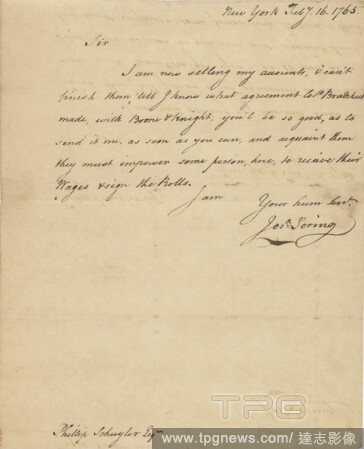 New York Feby. 16. 1765.
Sir
I am now settling my accounts, & can't
finish them, till I know what agreement Colo. Bradstreet
made, with Boone & Knight, you'l be so good, as to
send it me, as soon as you can, and acquaint them
they must empower some person, here, to receive their
Wages & sign the Rolls.
I am
Your hum Servt.
Jos. Loring
Phillip Schuyler Esqr
TPG
www.tpgnews.com/達志影像